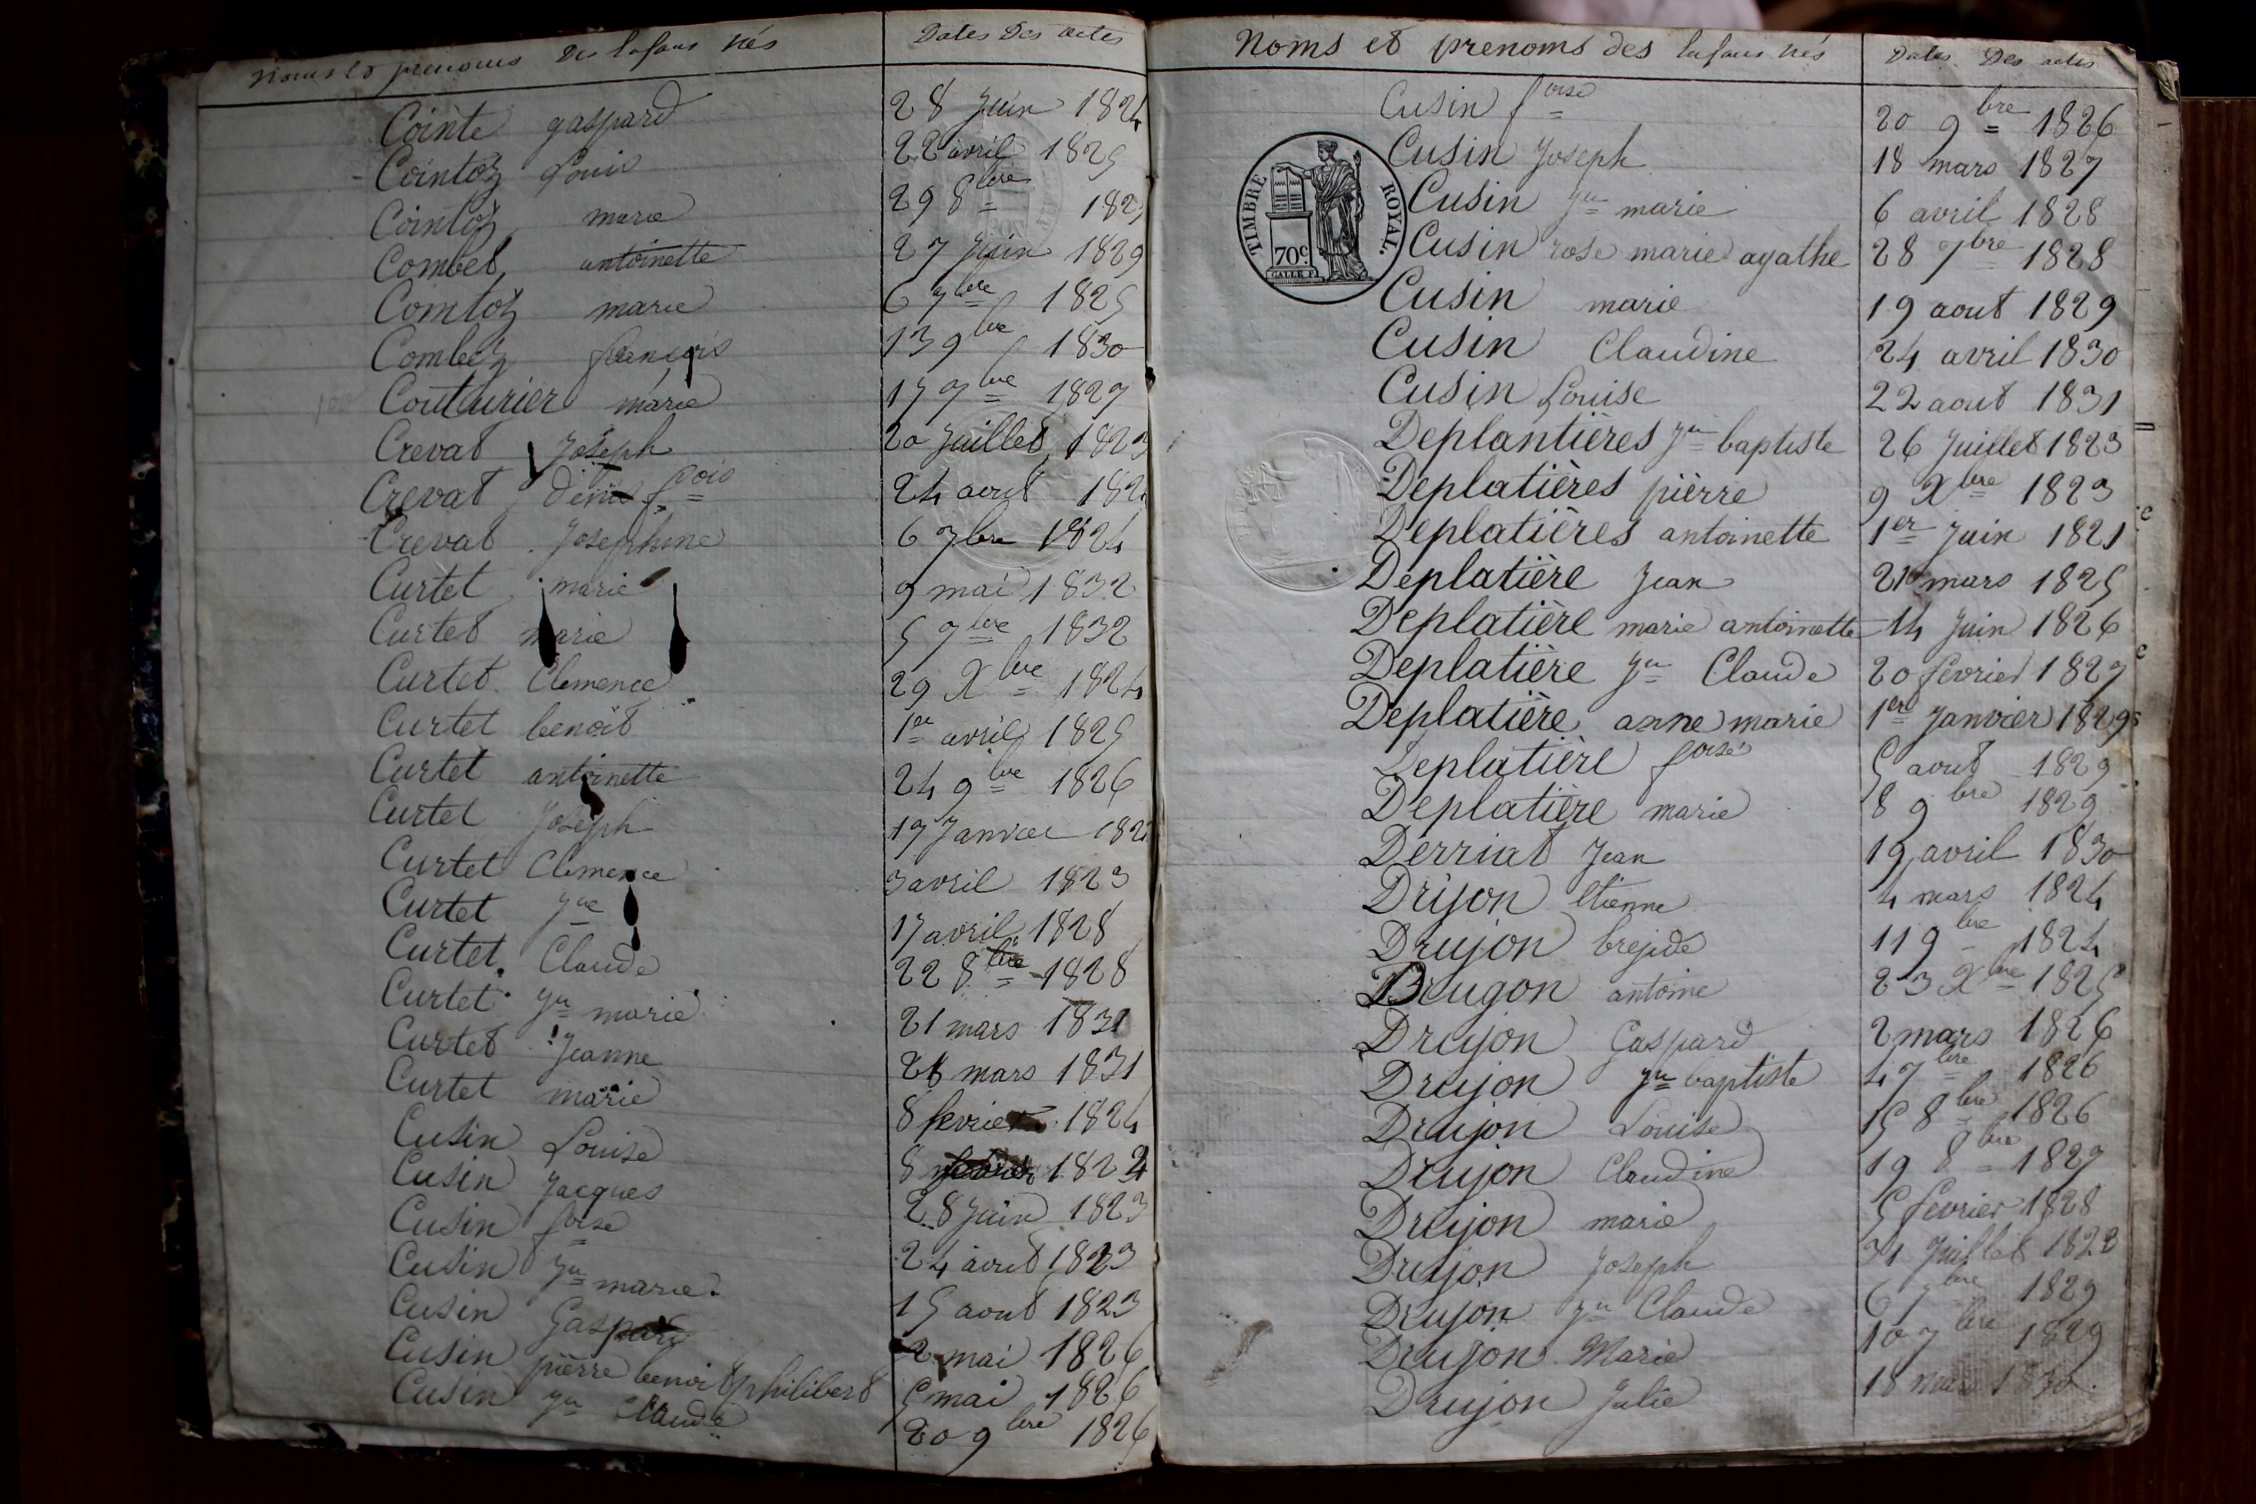 Noms et prenoms Des Enfans nés Dates Des actes
Cointe gaspard 28 Juin 1824
Cointoz Louis 22 avril 1825
Cointoz marie 29 8bre
Combet antoinette 27 Juin 1829
Comtoz marie 6 7bre 1825
Combez francois 13 9bre 1830
Couturier marie 15 7bre 1827
Crevat Joseph 20 Juillet 1823
Crevat denis fois 24 aout
Crevat Josephine 6 7bre 1824
Curtet marie 9 mai 1832
Curtet marie 5 7bre 1832
Curtet Clemence 29 Xbre 1824
Curtet benoit 1er avril 1825
Curtet antoinette 24 9bre 1826
Curtet Joseph 17 Janvier
Curtet Clemence 3 avril 1823
Curtet Jne 17 avril 1828
Curtet Claude 22 8bre 1828
Curtet Jn marie 21 mars 1831
Curtet Jeanne 28 mars 1831
Curtet marie 8 fevrier 1824
Cusin Louise 8 1822
Cusin Jacques 28 Juin 1823
Cusin foise 24 aout 1823
Cusin Jn marie 15 aout 1823
Cusin Gaspard 2 mai 1826
Cusin pierre benoit philibert 5 mai 1826
Cusin Jn Claude 20 9bre 1826
Noms et prenoms des Enfans nés Dates Des actes
Cusin foise 20 9bre 1826
Cusin Joseph 18 mars 1827
Cusin Jn marie 6 avril 1828
Cusin rose marie agathe 28 7bre 1828
Cusin marie 19 aout 1829
Cusin Claudine 24 avril 1830
Cusin Louise 22 aout 1831
TIMBRE ROYAL.
70c.
Deplantières Jn baptiste 26 Juillet 1823
Deplatières pièrre 9 Xbre 1823
Deplatières antoinette 1er Juin 1821
Deplatière Jean 21 mars 1825
Deplatière marie antoinette 14 Juin 1826
Deplatière Jn Claude 20 fevrier 1827
Deplatière anne marie 1er Janvier 1829
Deplatière foise 5 aout 1829
Deplatière marie 8 9bre 1829
Derriat Jean 19 avril 1830
Drijon Etienne 4 mars 1824
Drujon brejide 11 9bre 1824
Drugon antoine 23 Xbre 1825
Drujon Gaspard 2 mars 1826
Drujon Jn baptiste 4 7bre 1826
Drujon Louise 15 8bre 1826
Drujon Claudine 19 8bre 1827
Drujon marie 5 fevrier 1828
Drujon Joseph 31 Juillet 1828
Drujon Jn Claude 6 7bre 1829
Drujon Marie 10 7bre 1829
Drujon Julie 18 mars 1830